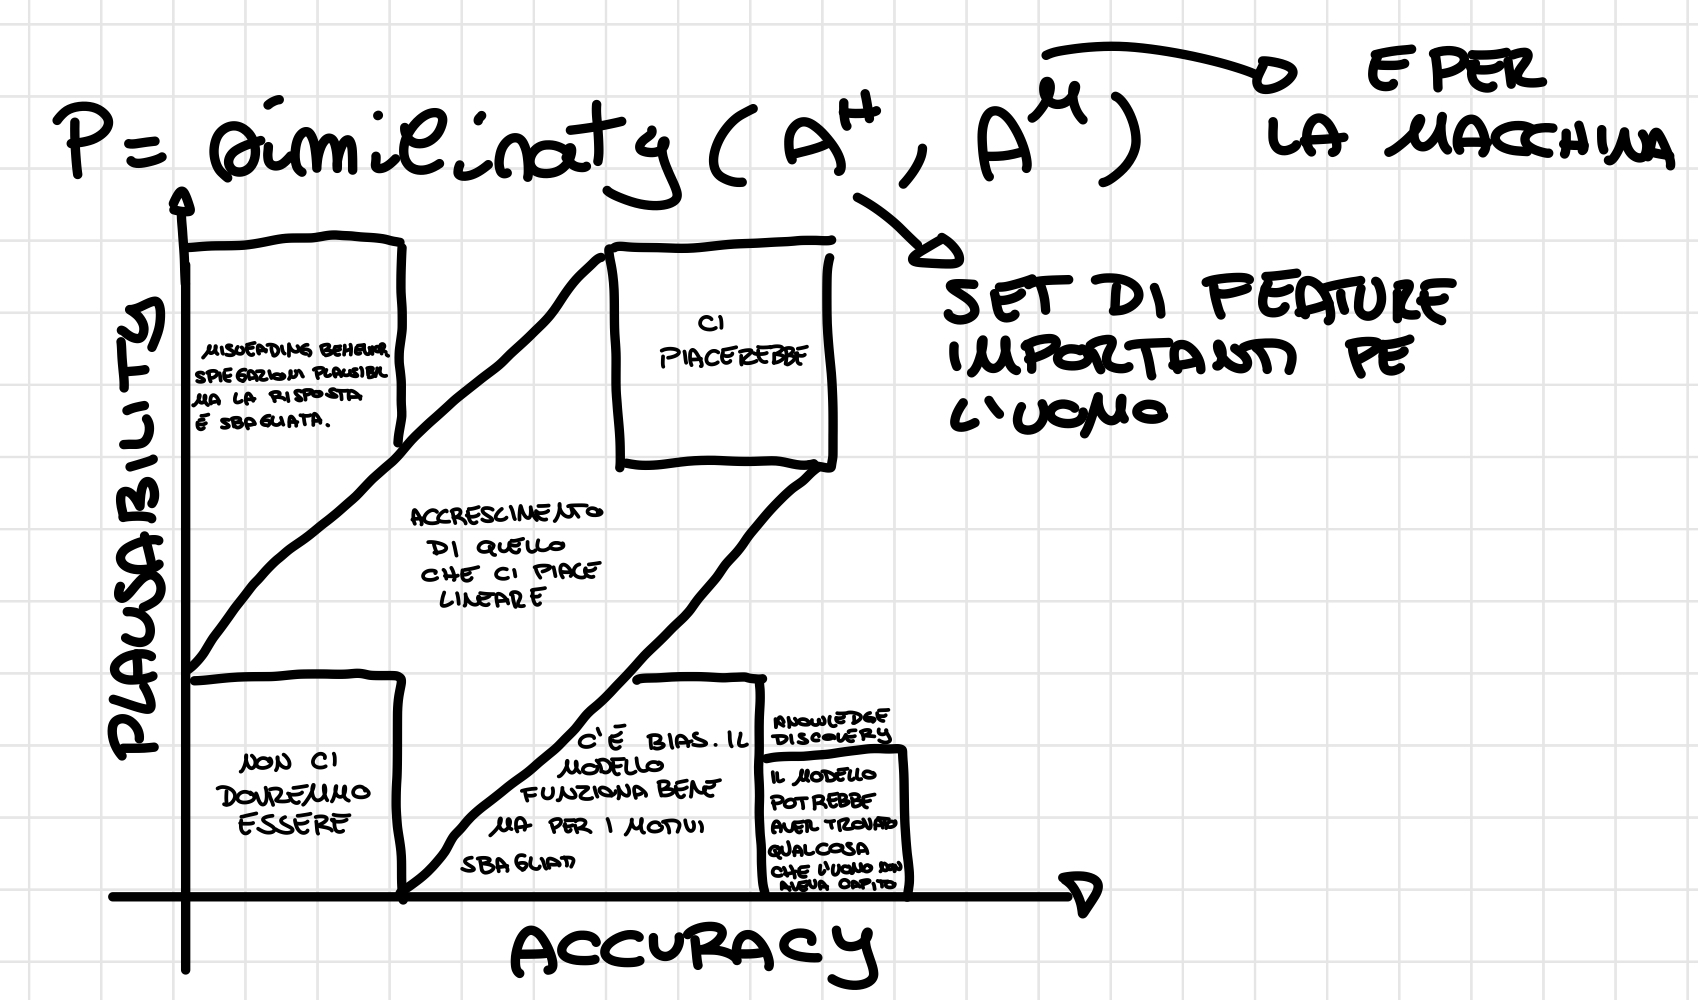 P = similarity (A^H, A^M)
E PER
LA MACCHINA
SET DI FEATURE
IMPORTANTI PE
L'UOMO
PLAUSABILITY
MISLEADING BEHEVIOR
SPIEGAZIONI PLAUSIBILI
MA LA RISPOSTA
È SBAGLIATA.
CI
PIACEREBBE
ACCRESCIMENTO
DI QUELLO
CHE CI PIACE
LINEARE
NON CI
DOVREMMO
ESSERE
C'È BIAS. IL
MODELLO
FUNZIONA BENE
MA PER I MOTIVI
SBAGLIATI
KNOWLEDGE
DISCOVERY
IL MODELLO
POTREBBE
AVER TROVATO
QUALCOSA
CHE L'UOMO NON
AVEVA CAPITO
ACCURACY